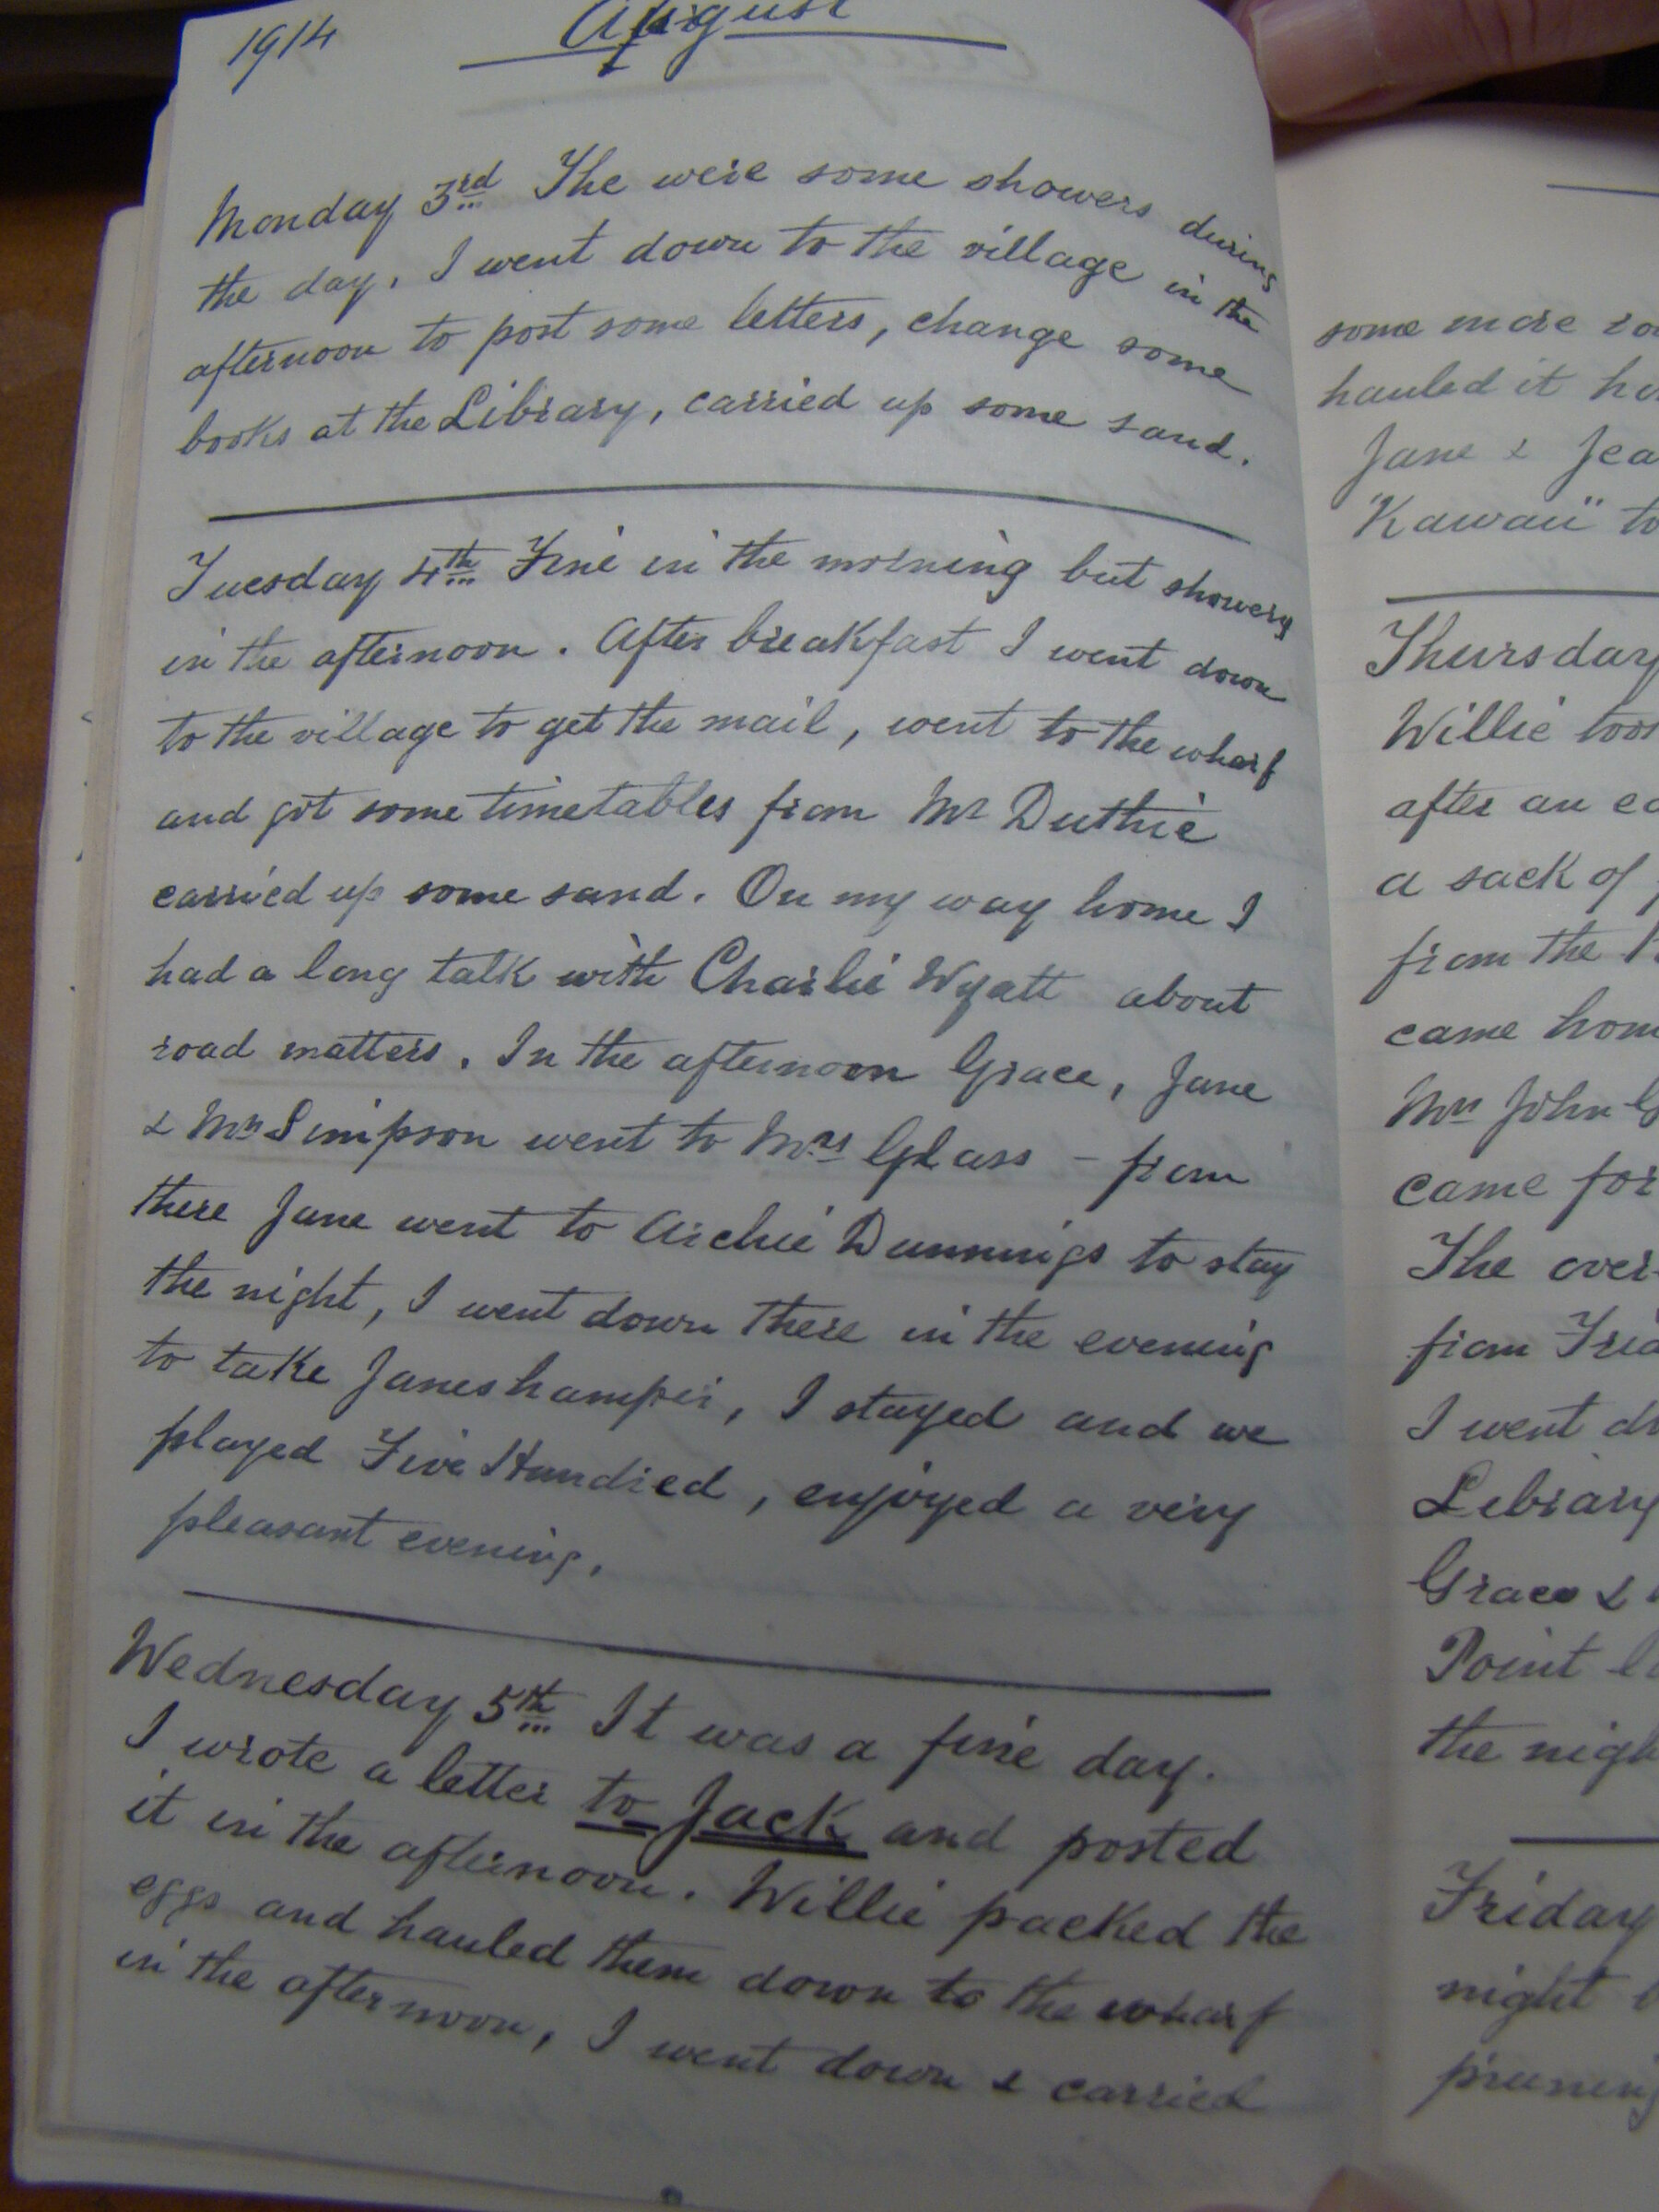 1914 August
Monday 3rd The were some showers during
the day. I went down to the village in the
afternoon to post some letters, change some
books at the Library, carried up some sand.
Tuesday 4th Fine in the morning but showery
in the afternoon. After breakfast I went down
to the village to get the mail, went to the wharf
and got some timetables from Mr Duthie
carried up some sand. On my way home I
had a long talk with Charlie Wyatt about
road matters. In the afternoon Grace, Jane
& Mrs Simpson went to Mrs Glass – from
there Jane went to Archie Dunnings to stay
the night, I went down there in the evening
to take Janes hamper, I stayed and we
played Five Hundred, enjoyed a very
pleasant evening.
Wednesday 5th It was a fine day.
I wrote a letter to Jack and posted
it in the afternoon. Willie packed the
eggs and hauled them down to the wharf
in the afternoon, I went down & carried
some more
hauled it
Jane &
"Kawau" to
Thursday
Willie
after an
a sack of
from the
came
Mrs John
came for
The
from
I went
Library
Grace &
Point
the
Friday
night